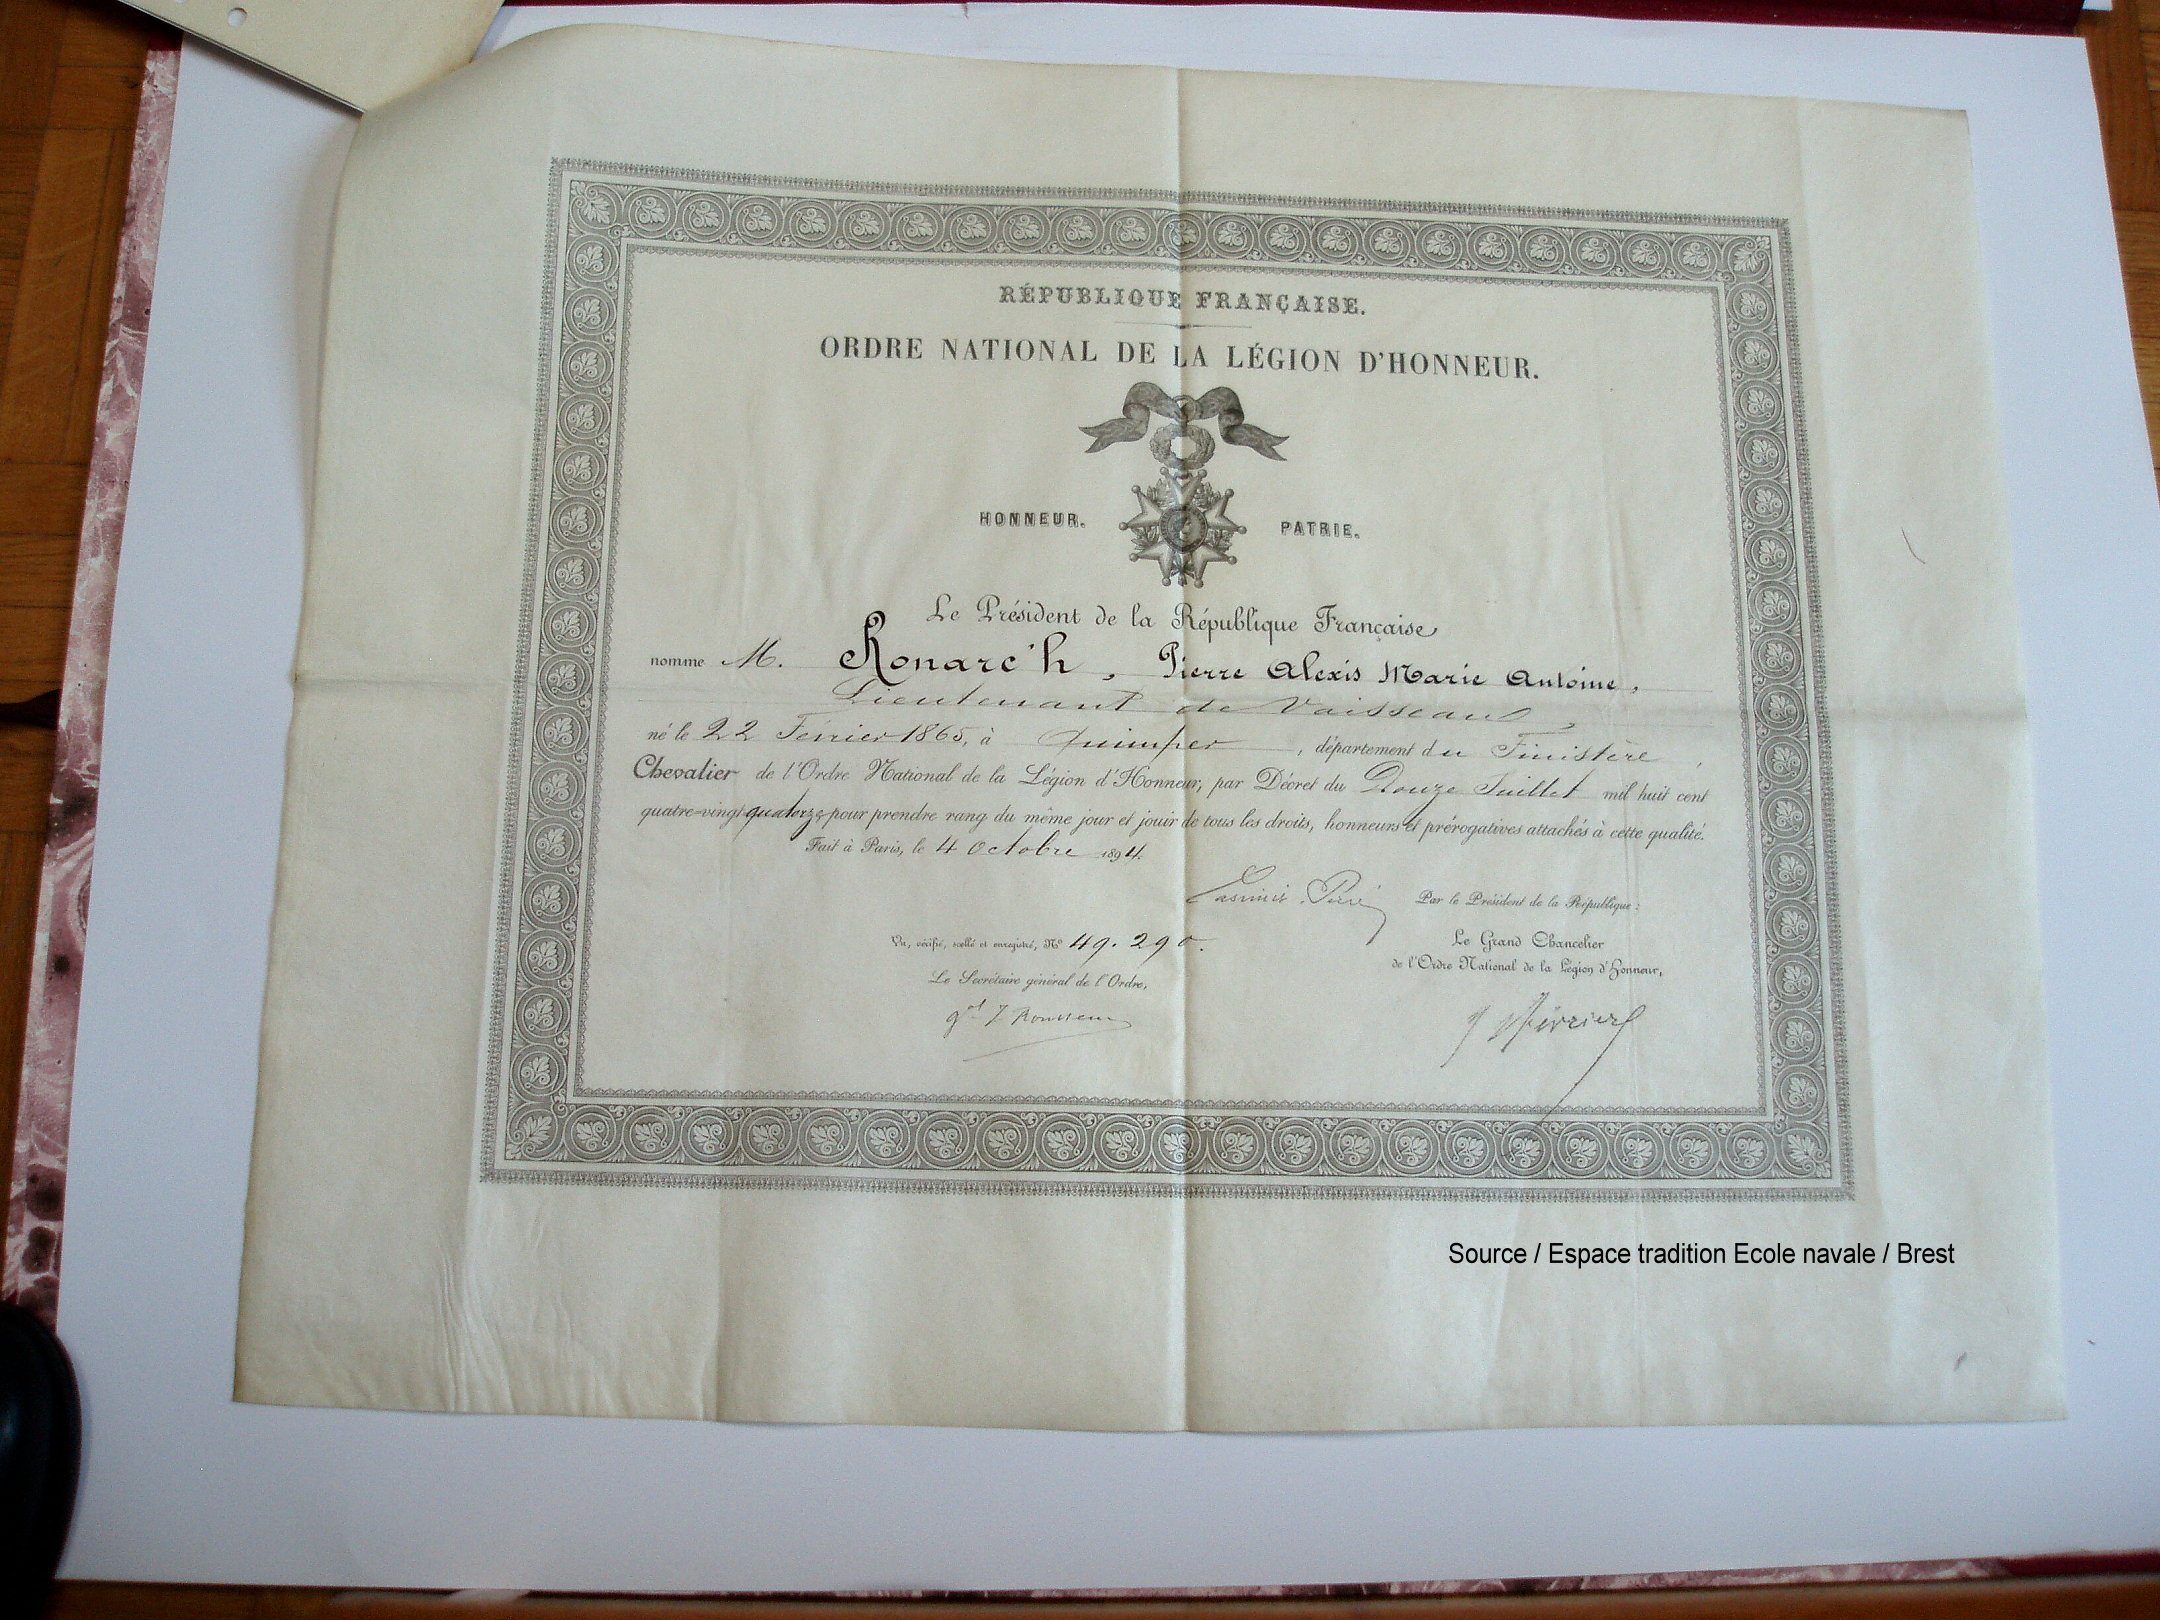 RÉPUBLIQUE FRANÇAISE.
ORDRE NATIONAL DE LA LÉGION D'HONNEUR.
HONNEUR. PATRIE.
Le Président de la République Française
nomme M. Ronarc'h, Pierre Alexis Marie Antoine,
Lieutenant de Vaisseau,
né le 22 Février 1865, à Quimper, département du Finistère,
Chevalier de l'Ordre National de la Légion d'Honneur, par Décret du Douze Juillet mil huit cent
quatre-vingt quatorze pour prendre rang du même jour et jouir de tous les droits, honneurs et prérogatives attachés à cette qualité.
Fait à Paris, le 4 Octobre 1894.
Casimir Perier
Par le Président de la République:
Vu, vérifié, scellé et enregistré, N° 49.290.
Le Grand Chancelier
de l'Ordre National de la Légion d'Honneur,
Le Secrétaire général de l'Ordre,
gal Rousseau
Février
Source / Espace tradition Ecole navale / Brest